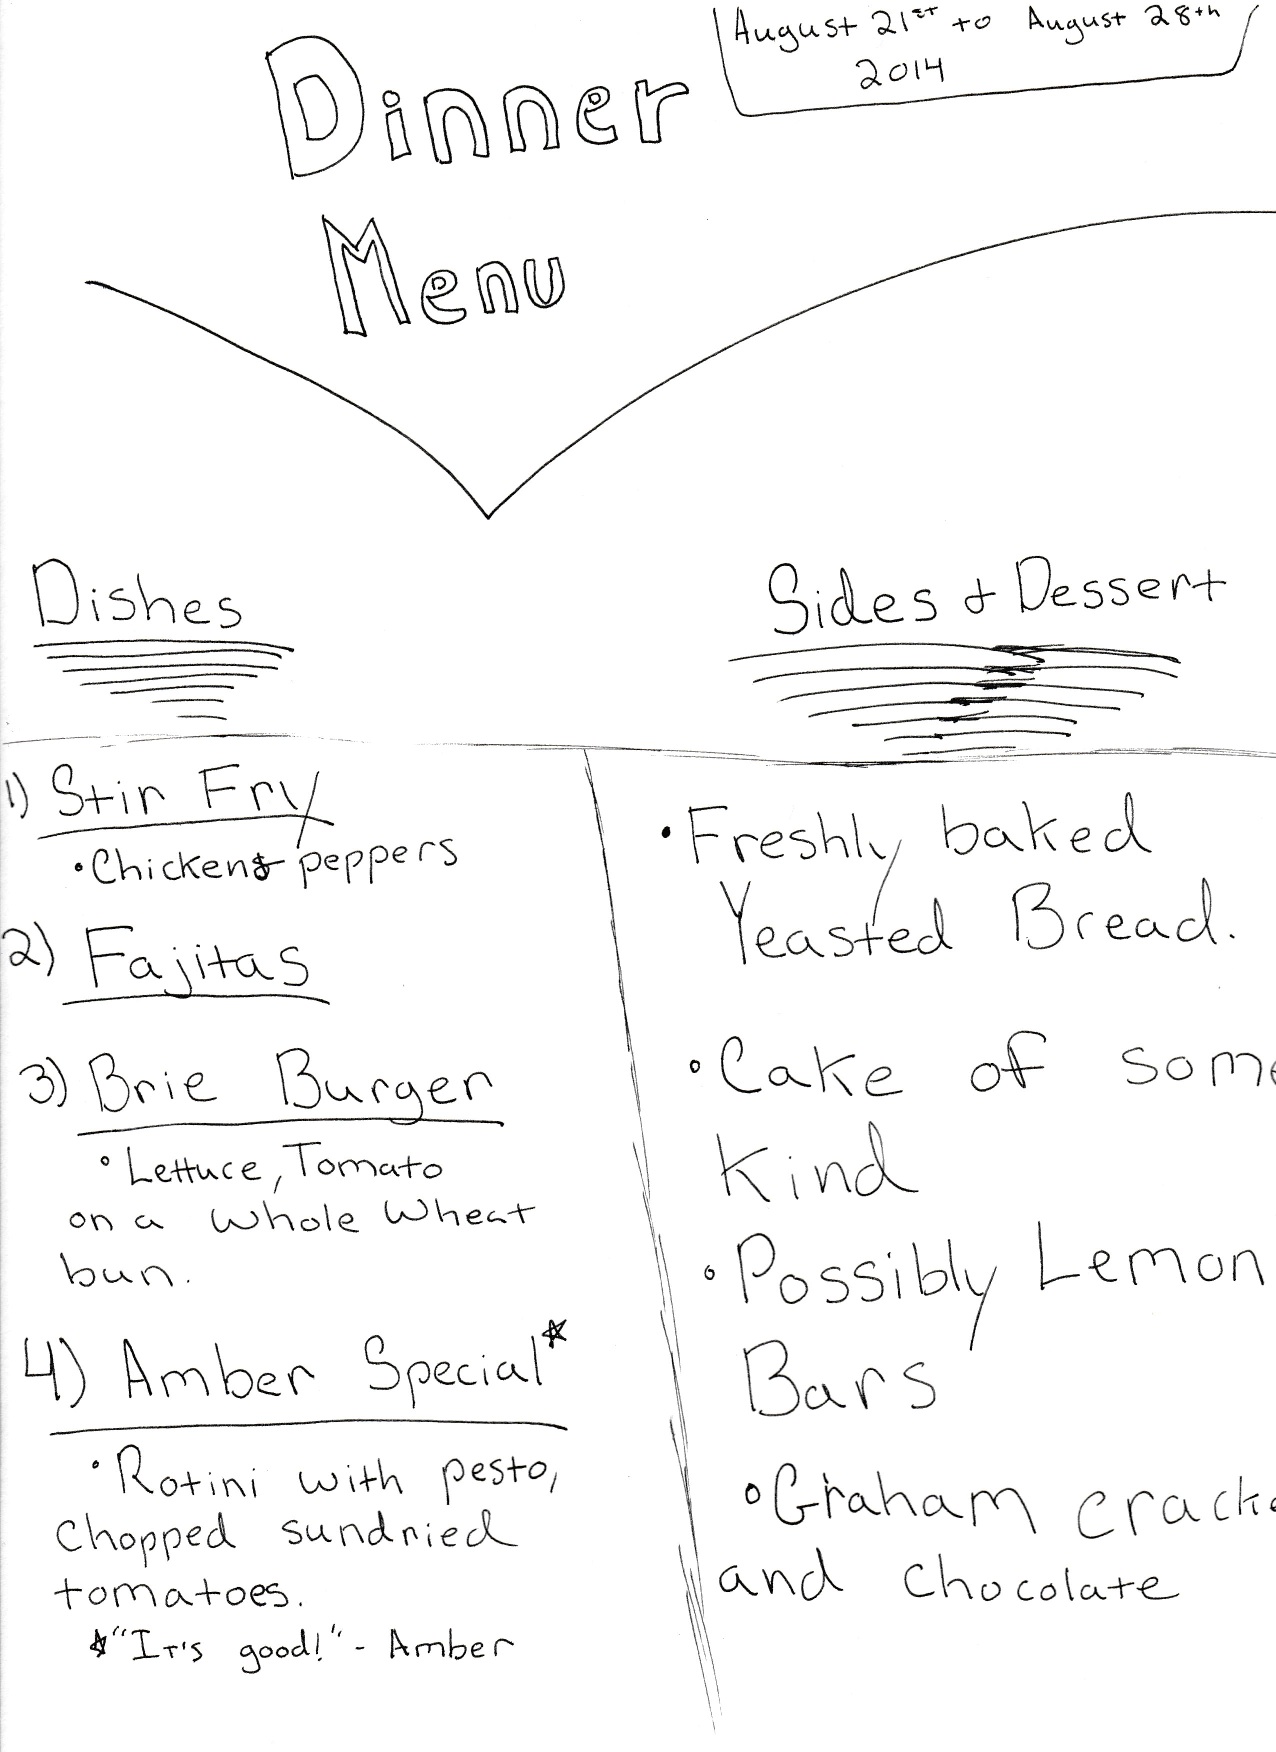 August 21st to August 28th
2014
Dinner
Menu
Dishes
1) Stir Fry
• Chicken & peppers
2) Fajitas
3) Brie Burger
• Lettuce, Tomato
on a whole wheat
bun.
4) Amber Special*
• Rotini with pesto,
Chopped sundried
tomatoes.
*"It's good!" - Amber
Sides & Dessert
• Freshly baked
Yeasted Bread.
• Cake of some
Kind
• Possibly Lemon
Bars
• Graham cracke
and chocolate